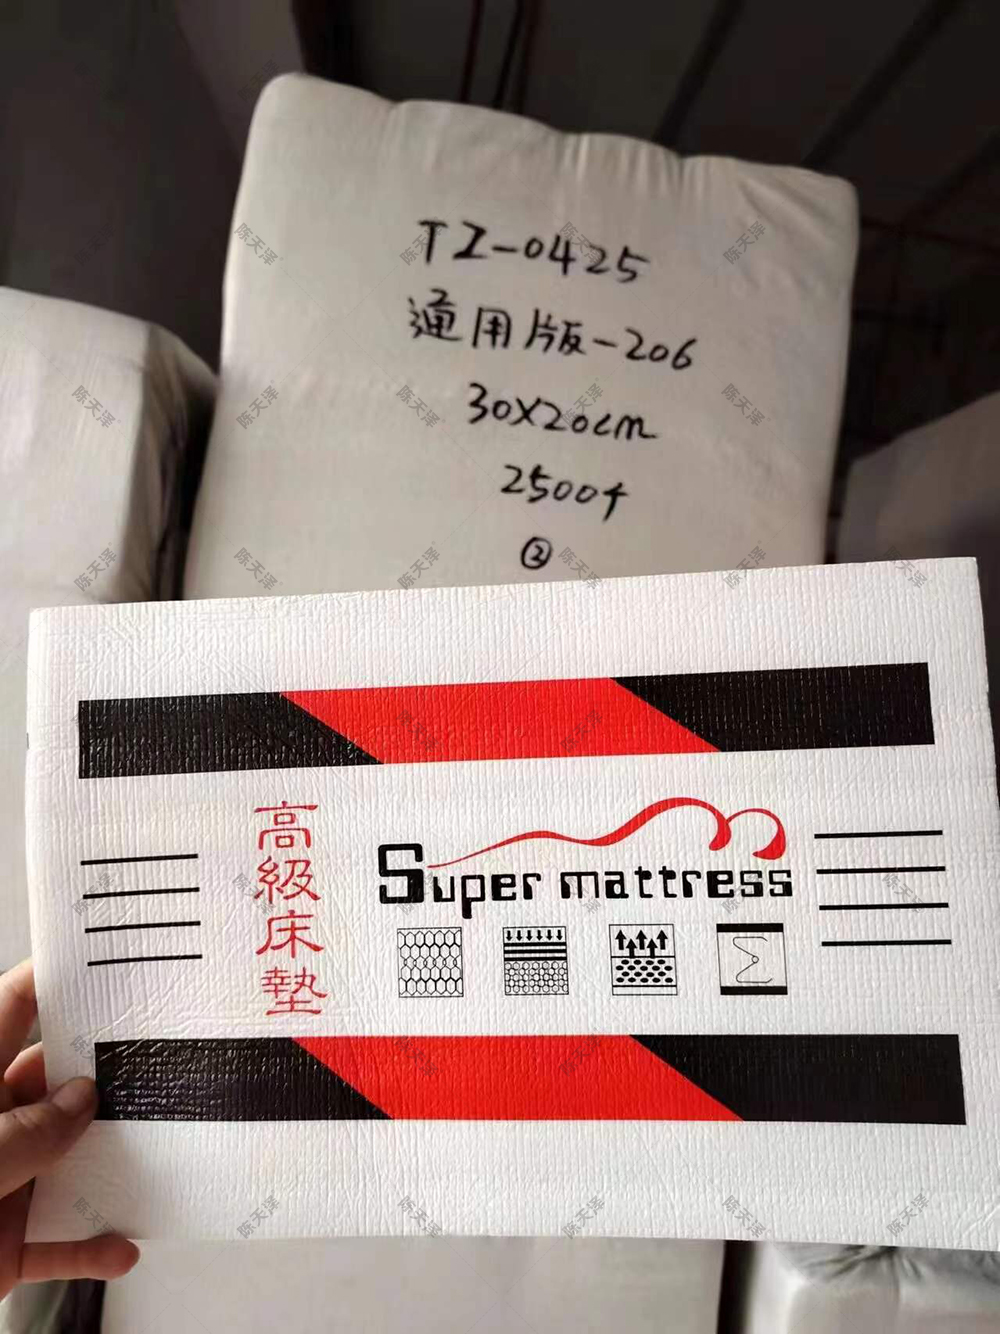 TZ-0425
通用版-206
30X20cm
2500个
②
高級床墊
Super mattress
陈天泽